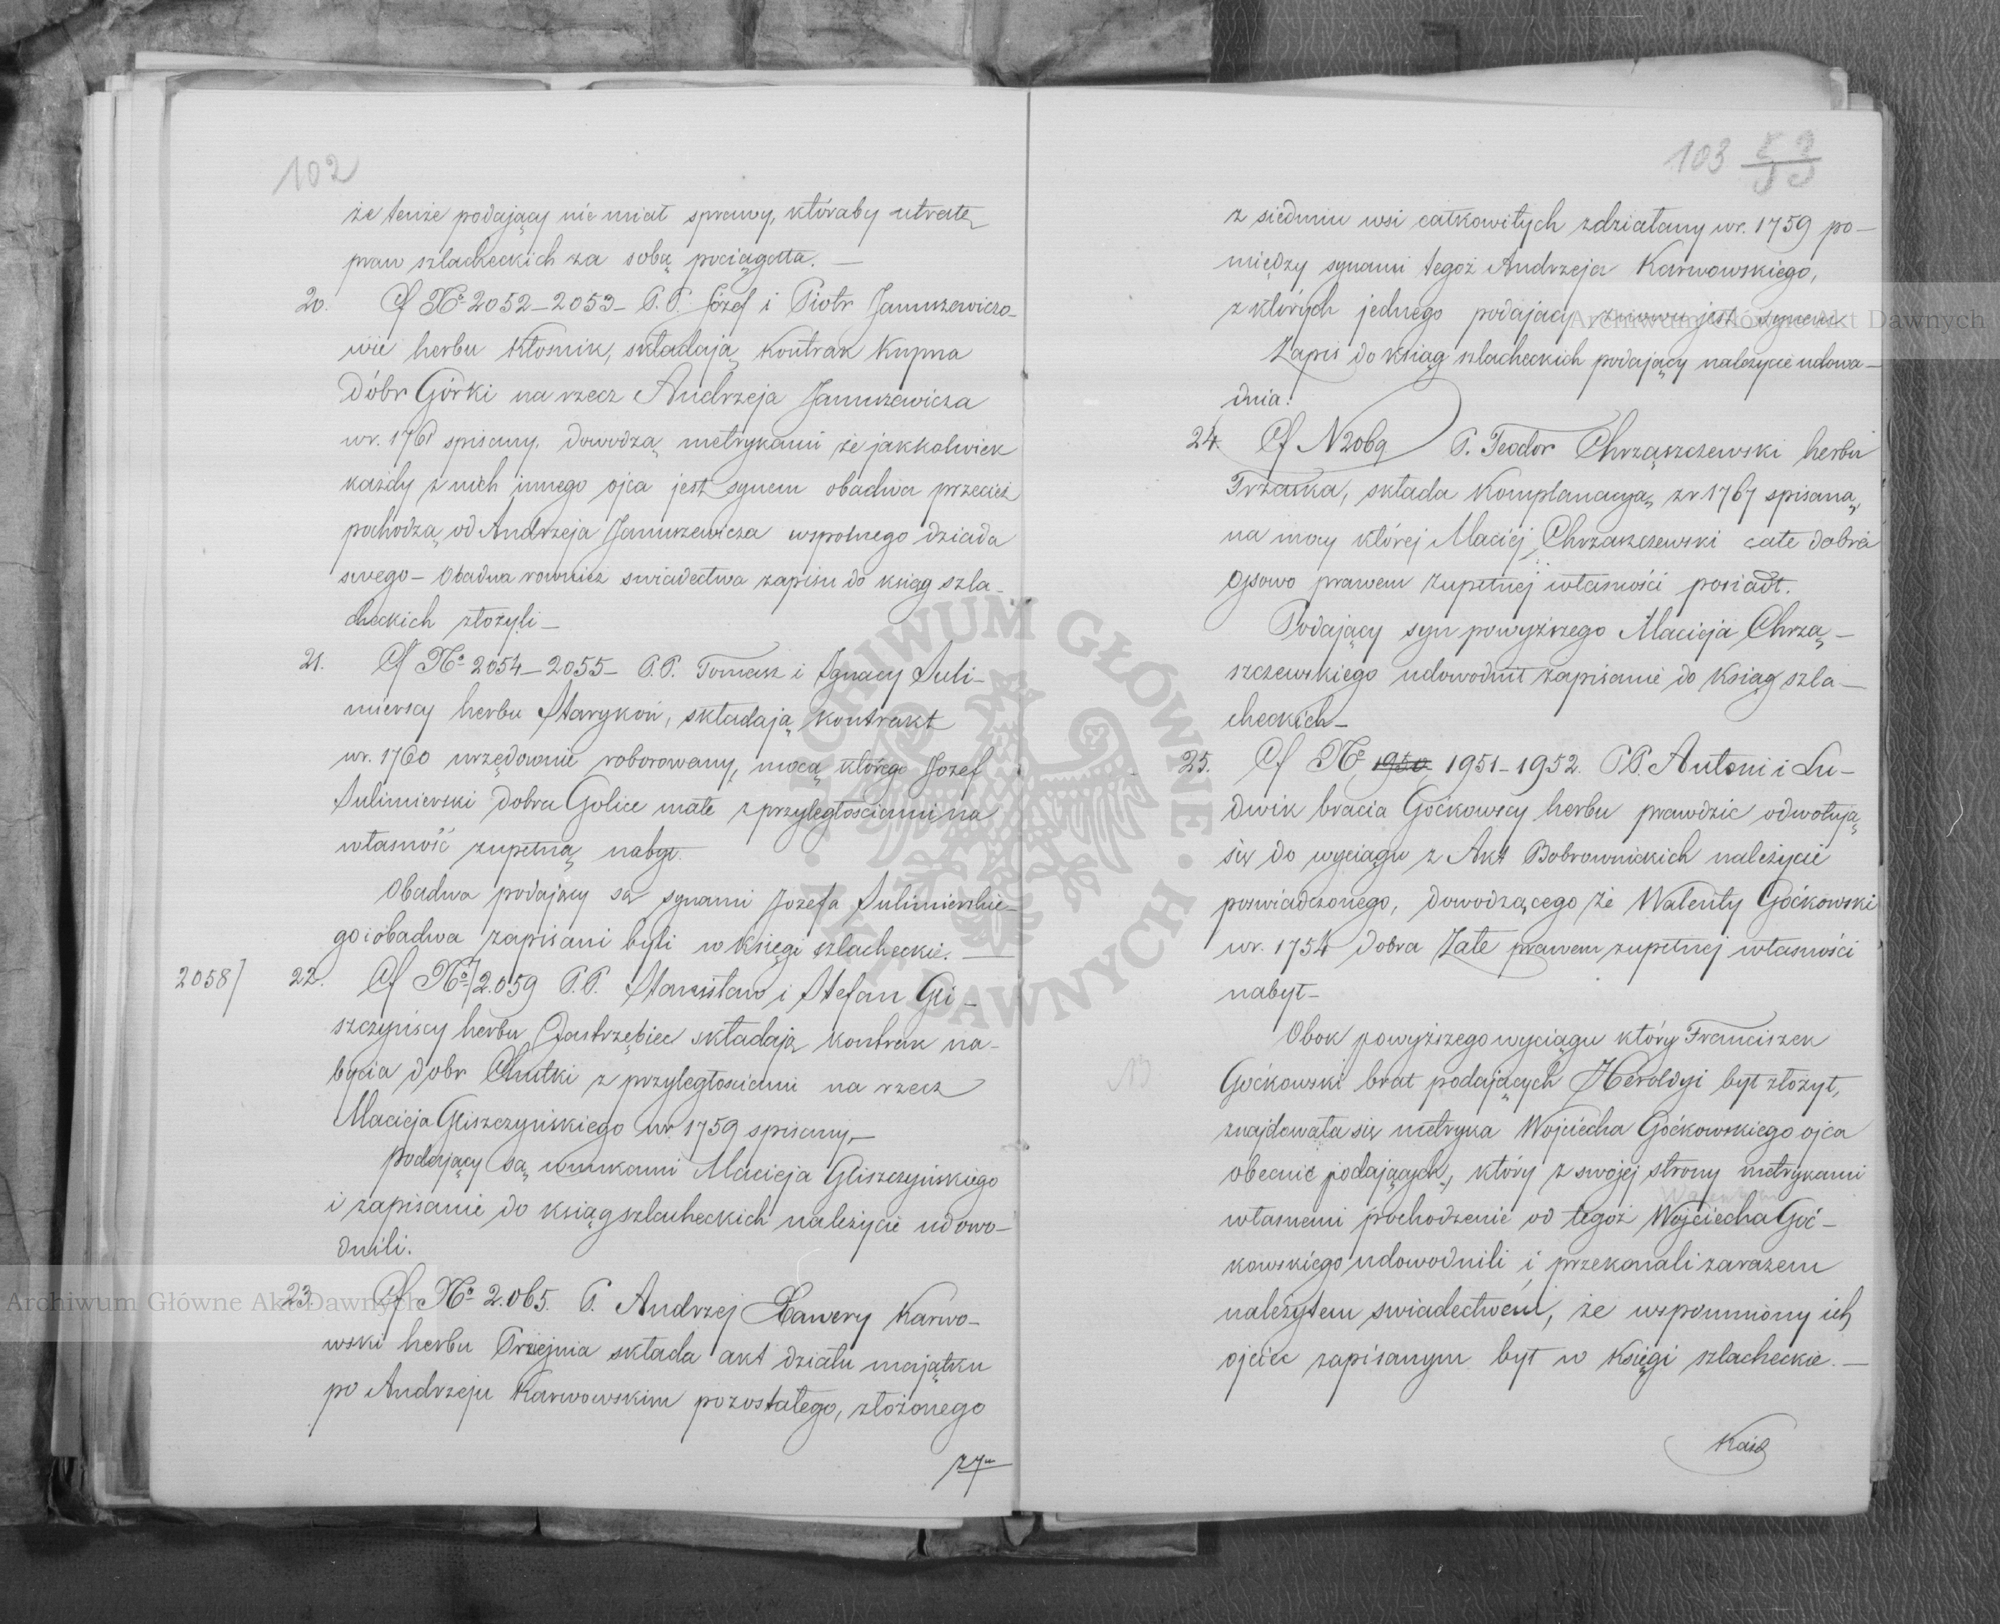 102
że tenże podający nie miał sprawy, któraby utratę
praw szlacheckich za sobą pociągała. —
20. Cf № 2052–2053– P.P. Józef i Piotr Januszewiczo-
wie herbu Kłosnik, składają kontrak kupna
dóbr Górki na rzecz Andrzeja Januszewicza
w r. 1761 spisany. dowodzą metrykami że jakkolwiek
każdy z nich innego ojca jest synem obadwa przecież
pochodzą od Andrzeja Januszewicza wspolnego dziada
swego – Obadwa rownież swiadectwa zapisu do ksiąg szla-
checkich złożyli –
21. Cf № 2054–2055– P.P. Tomasz i Ignacy Suli-
mierscy herbu Starykoń, składają kontrakt
w r. 1760 urzędownie roborowany, mocą którego Jozef
Sulimierski dobra Golice małe z przyległościami na
własność zupełną nabył.
Obadwa podający są synami Jozefa Sulimierskie-
go i obadwa zapisani byli w księgi szlacheckie. —
2058] 22. Cf №] 2.059 P.P. Stanisław i Stefan Gli-
szczyńscy herbu Jastrzębiec składają kontrak na-
bycia dobr Chutki z przyległosciami na rzecz
Macieja Gliszczyńskiego w r 1759 spisany, —
podający są wnukami Macieja Gliszczyńskiego
i zapisanie do ksiąg szlacheckich należycie udowo-
dnili.
23. Cf № 2.065. P. Andrzej Xawery Karwo-
wski herbu Pniejnia składa akt działu majątku
po Andrzeju Karwowskim pozostałego, złożonego
z 7u
103 53
z siedmiu wsi całkowitych zdziałany w r. 1759 po-
między synami tegoż Andrzeja Karwowskiego,
z których jednego podający znowu jest synem
Zapis do ksiąg szlacheckich podający należycie udowa-
dnia.
24. Cf N 2069 P. Teodor Chrząszczewski herbu
Trzaska, składa komplanacyą, z r 1767 spisaną,
na mocy której Maciej Chrzaszczewski całe dobra
Ojsowo prawem zupełnej własności posiadł.
Podający syn powyższego Macieja Chrzą-
szczewskiego udowodnił zapisanie do Ksiąg szla-
checkich –
25. Cf № 1950 1951–1952. P.P. Antoni i Lu-
dwik bracia Goćkowscy herbu prawdzic odwołują
się do wyciągu z Akt Bobrownickich należycie
poswiadczonego, dowodzącego że Walenty Goćkowski
w r. 1754 dobra Zale prawem zupełnej własności
nabył –
Obok powyższego wyciągu który Franciszek
Goćkowski brat podających Heroldyi był złożył,
znajdowała się metryka Wojciecha Goćkowskiego ojca
obecnie podających, który z swojej strony metrykami
Walentym
własnemi pochodzenie od tegoż Wojciecha Goć-
kowskiego udowodnili i przekonali zarazem
należytem swiadectwem, że wspomniony ich
ojciec zapisanym był w Księgi szlacheckie. —
Każd
Archiwum Główne Akt Dawnych
Archiwum Główne Akt Dawnych
ARCHIWUM GŁÓWNE · AKT DAWNYCH ·